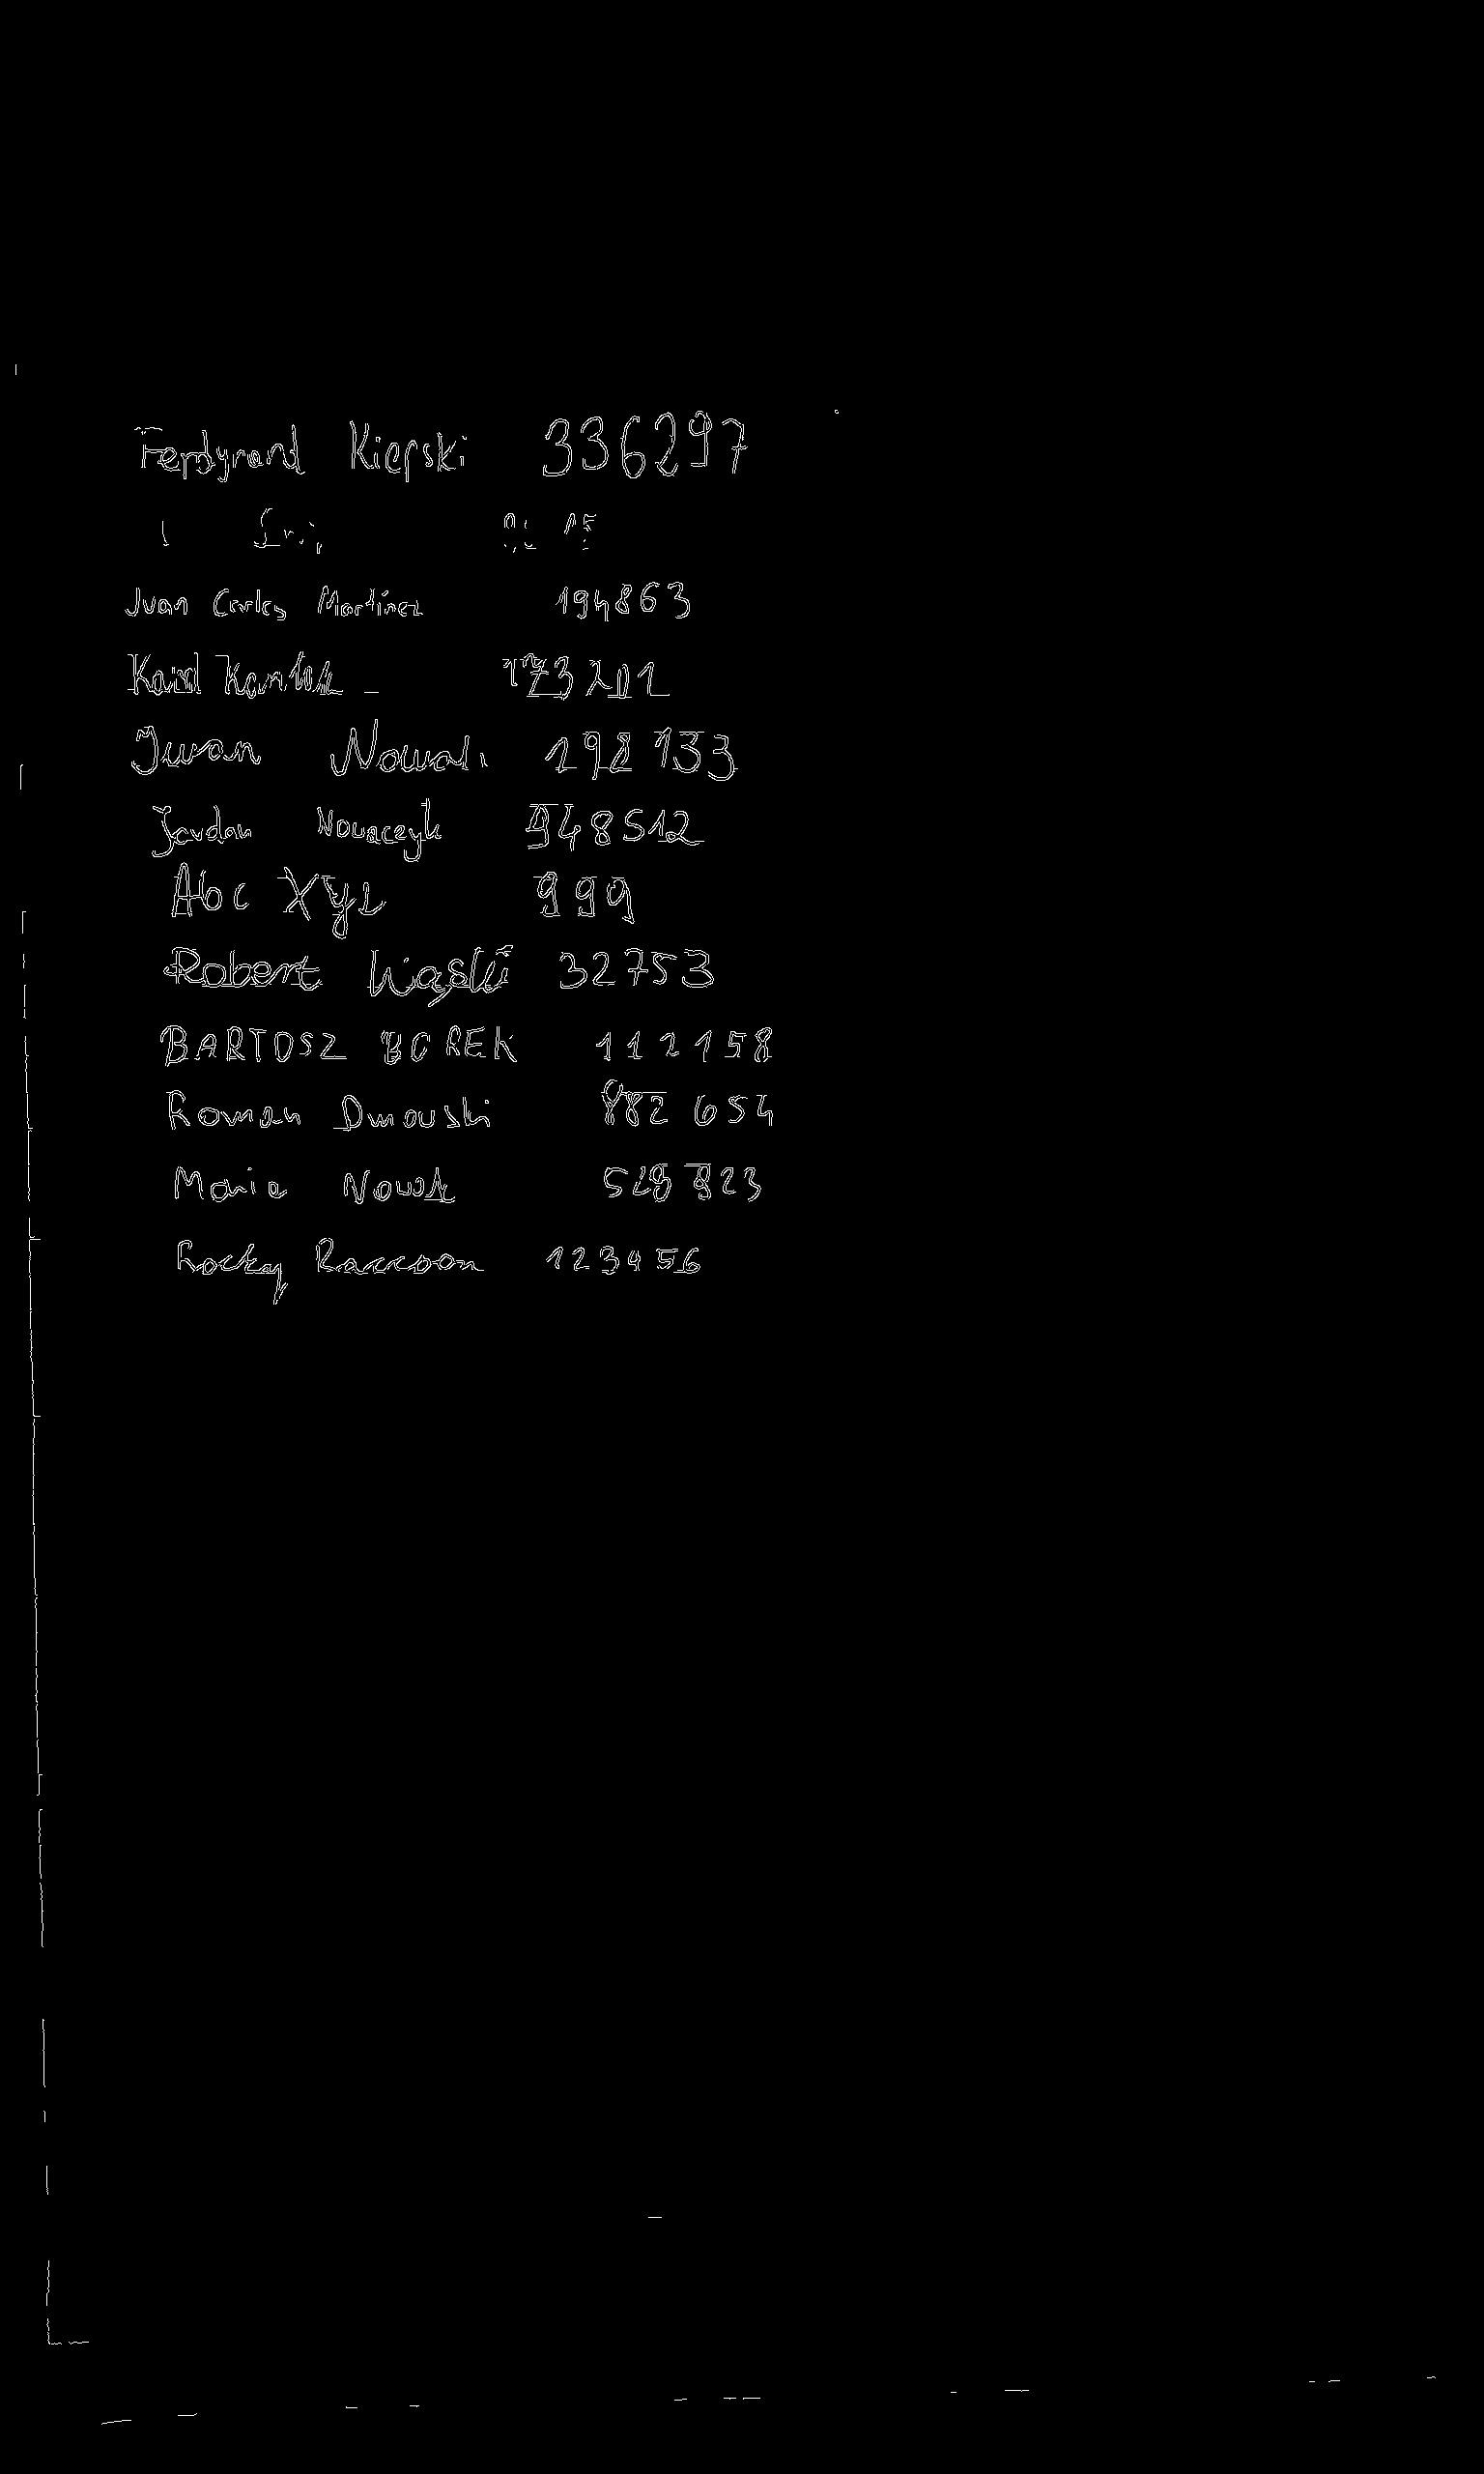 Ferdynand Kiepski 336297
Juan Carlos Martinez 194863
Karol 173201
Iwan Nowak 192133
Jordan Nowaczyk 948512
Abc Xyz 999
Robert Wąski 32753
BARTOSZ BOREK 112158
Roman Dmowski 882 654
Maria Nowak 823
Rocky Raccoon 123456